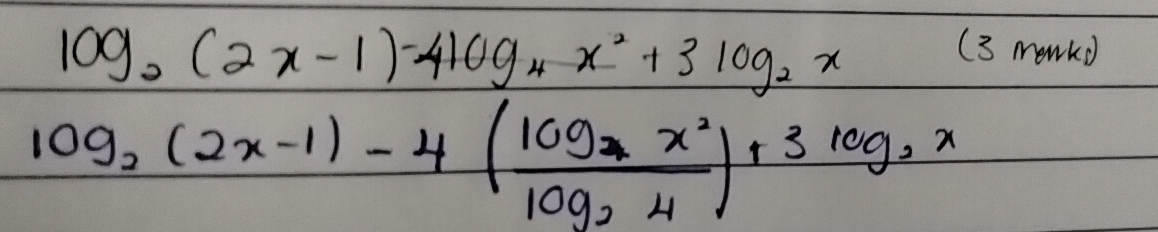 log₂ (2x-1)-4log₄ x² + 3 log₂ x (3 marks)
log₂ (2x-1) - 4 (log₂ x² / log₂ 4) + 3 log₂ x